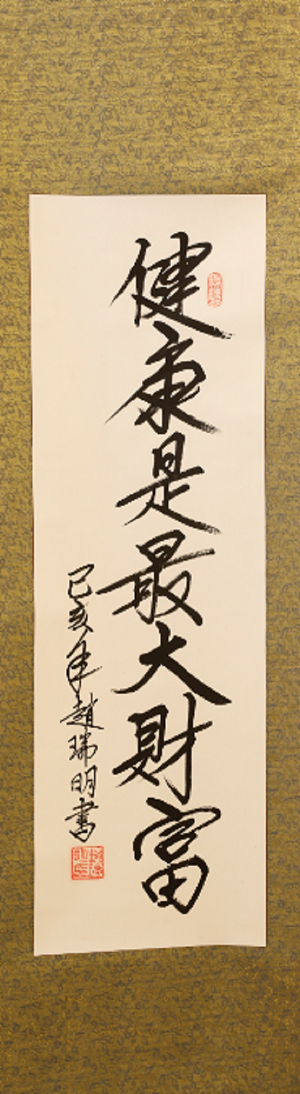 健康是最大財富
己亥年趙瑞明書